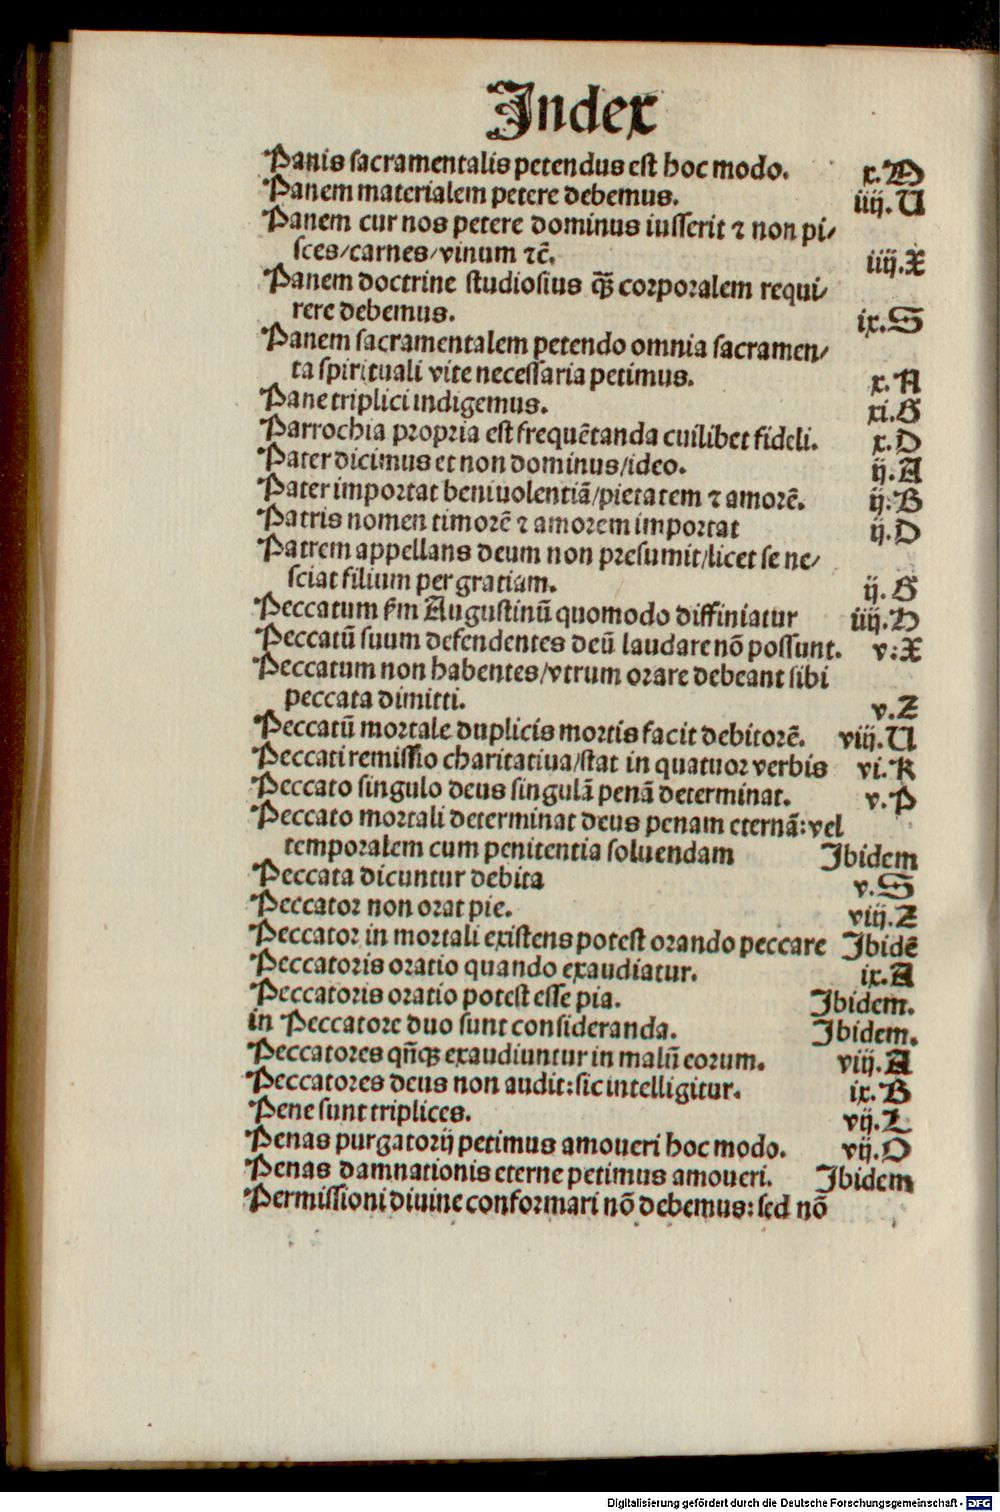 Index
Panis sacramentalis petendus est hoc modo. x.M
Panem materialem petere debemus. iiij.U
Panem cur nos petere dominus iusserit ⁊ non pi/
sces/carnes/vinum ⁊c̄. iiij.X
Panem doctrine studiosius q̃ꝫ corporalem requi/
rere debemus. ix.S
Panem sacramentalem petendo omnia sacramen/
ta spirituali vite necessaria petimus. x.A
Pane triplici indigemus. xi.G
Parrochia propria est frequētanda cuilibet fideli. x.D
Pater dicimus et non dominus/ideo. ij.A
Pater importat beniuolentiā/pietatem ⁊ amorē. ij.B
Patris nomen timorē ⁊ amorem importat ij.D
Patrem appellans deum non presumit/licet se ne/
sciat filium per gratiam. ij.G
Peccatum ẜm Augustinū quomodo diffiniatur iiij.H
Peccatū suum defendentes deū laudare nō possunt. v.X
Peccatum non habentes/vtrum orare debeant sibi
peccata dimitti. v.Z
Peccatū mortale duplicis mortis facit debitorē. viij.U
Peccati remissio charitatiua/stat in quatuor verbis vi.K
Peccato singulo deus singulā penā determinat. v.P
Peccato mortali determinat deus penam eternā:vel
temporalem cum penitentia soluendam Ibidem
Peccata dicuntur debita v.S
Peccator non orat pie. viij.Z
Peccator in mortali existens potest orando peccare Ibidē
Peccatoris oratio quando exaudiatur. ix.A
Peccatoris oratio potest esse pia. Ibidem.
in Peccatore duo sunt consideranda. Ibidem.
Peccatores qñqꝫ exaudiuntur in malū eorum. viij.A
Peccatores deus non audit:sic intelligitur. ix.B
Pene sunt triplices. vij.L
Penas purgatorij petimus amoueri hoc modo. vij.O
Penas damnationis eterne petimus amoueri. Ibidem
Permissioni diuine conformari nō debemus:sed nō
Digitalisierung gefördert durch die Deutsche Forschungsgemeinschaft - DFG